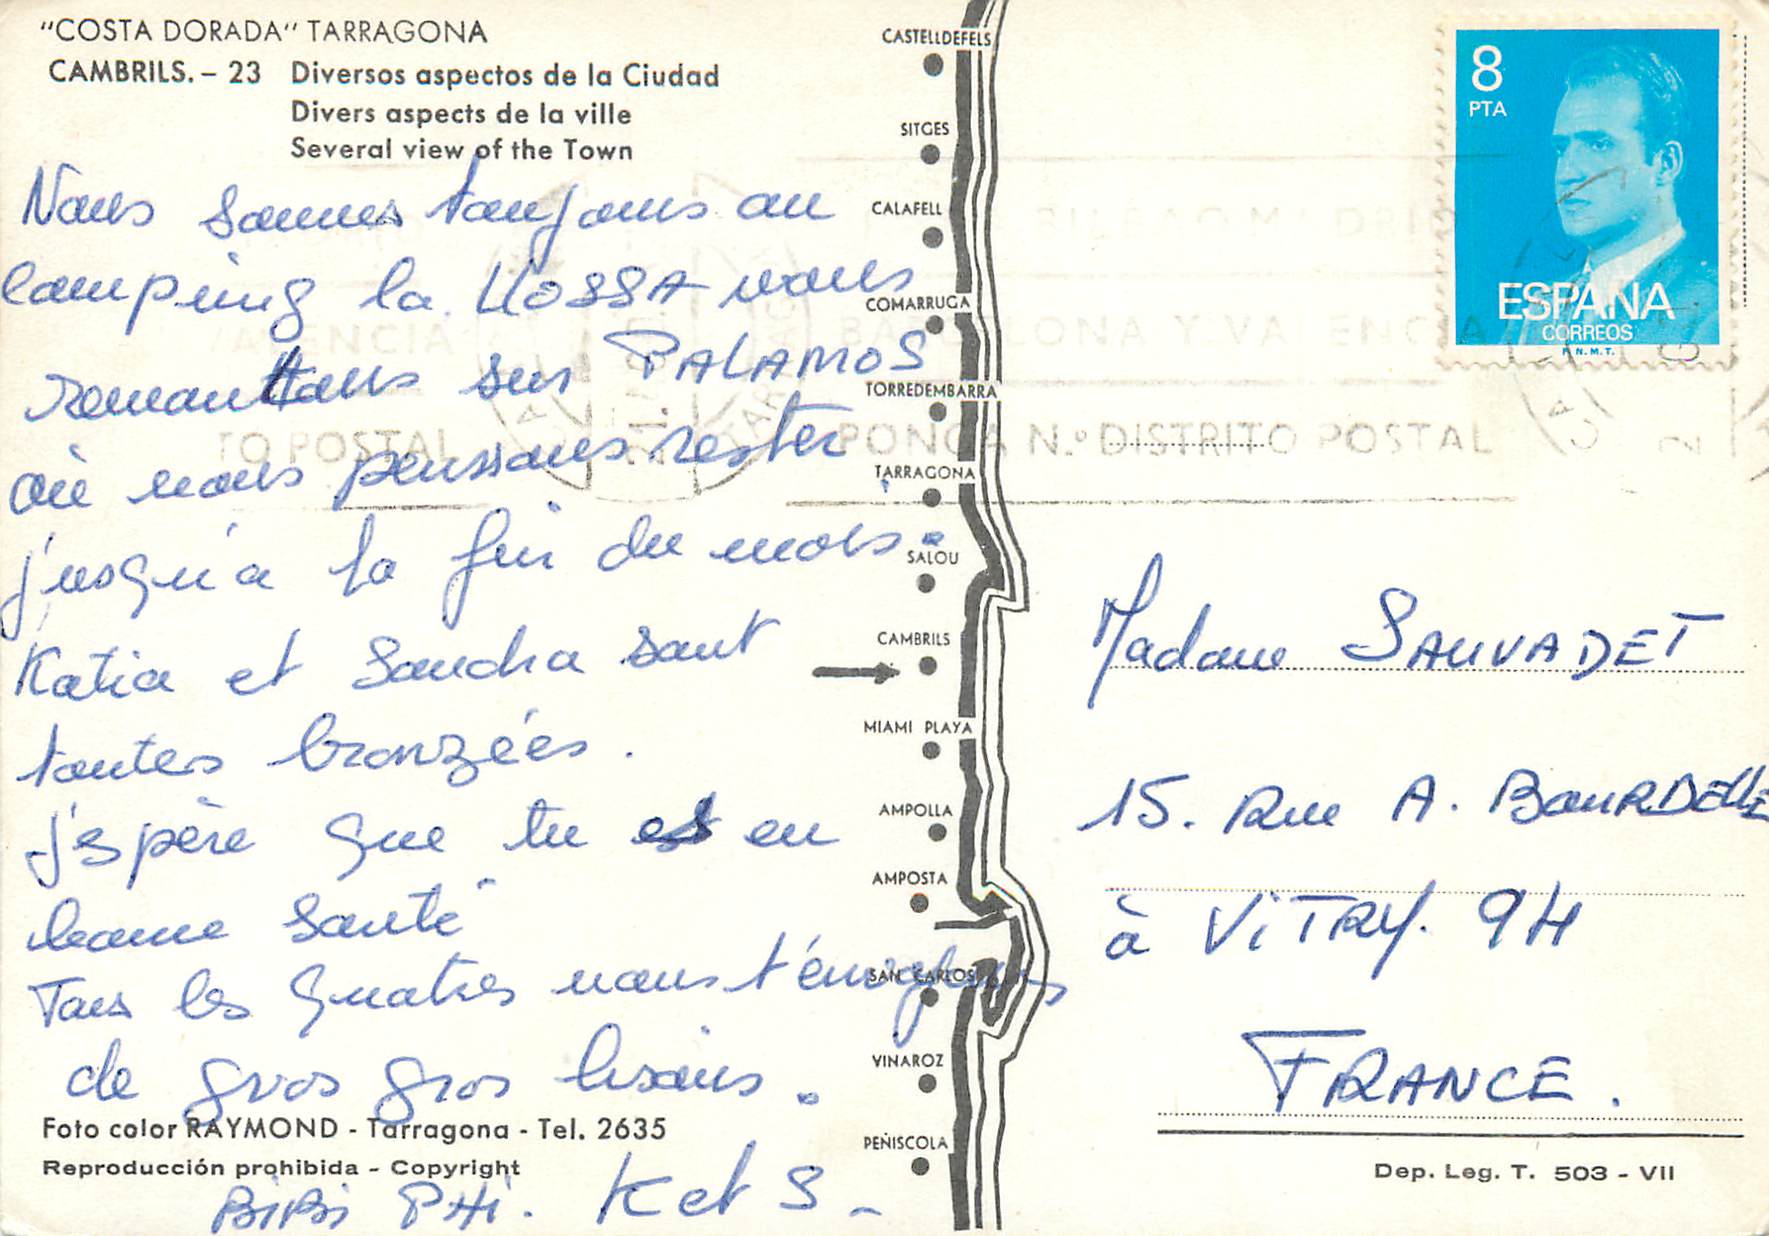 "COSTA DORADA" TARRAGONA
CAMBRILS. - 23 Diversos aspectos de la Ciudad
Divers aspects de la ville
Several view of the Town
Nous sommes toujours au
camping la LLOSSA nous
remontons sur PALAMOS
où nous pensions rester
j'usqu'a la fin du mois.
Katia et Sandra sont
toutes bronzées.
j'espère que tu es en
bonne santé
Tous les quatres nous t'envoyons
de gros gros bisous.
Foto color RAYMOND - Tarragona - Tel. 2635
Reproducción prohibida - Copyright
BiBi PHi. K et S -
CASTELLDEFELS
SITGES
CALAFELL
COMARRUGA
TORREDEMBARRA
TARRAGONA
SALOU
CAMBRILS
MIAMI PLAYA
AMPOLLA
AMPOSTA
SAN CARLOS
VINAROZ
PEÑISCOLA
8
PTA
ESPAÑA
CORREOS
F.N.M.T.
BILBAO MADRID
BARCELONA Y VALENCIA
PONGA N.º DISTRITO POSTAL
VALENCIA
TO POSTAL
Madame SAUVADET
15. Rue A. BOURDELLE
à ViTRY. 94
FRANCE.
Dep. Leg. T. 503 - VII